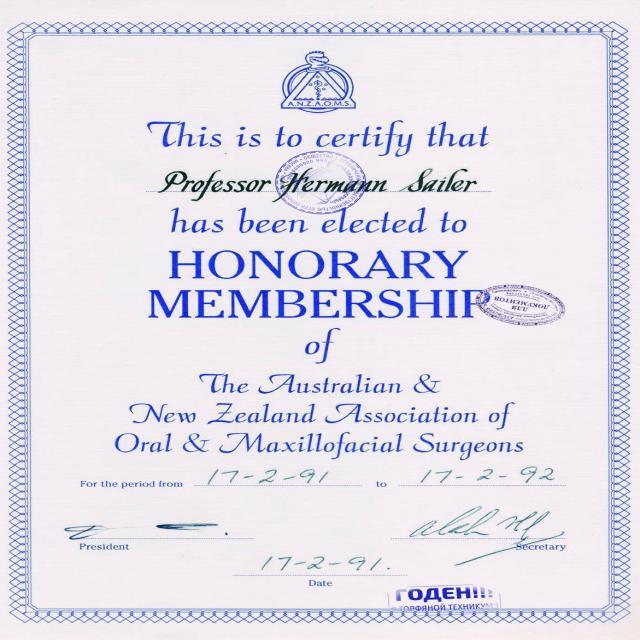 A.N.Z.A.O.M.S.
This is to certify that
Professor Hermann Sailer
has been elected to
HONORARY
MEMBERSHIP
ДЛЯ
ДОКУМЕНТОВ
of
The Australian &
New Zealand Association of
Oral & Maxillofacial Surgeons
For the period from 17-2-91 to 17-2-92
President
Secretary
17-2-91.
Date
ГОДЕН!!!
ТОРФЯНОЙ ТЕХНИКУМ